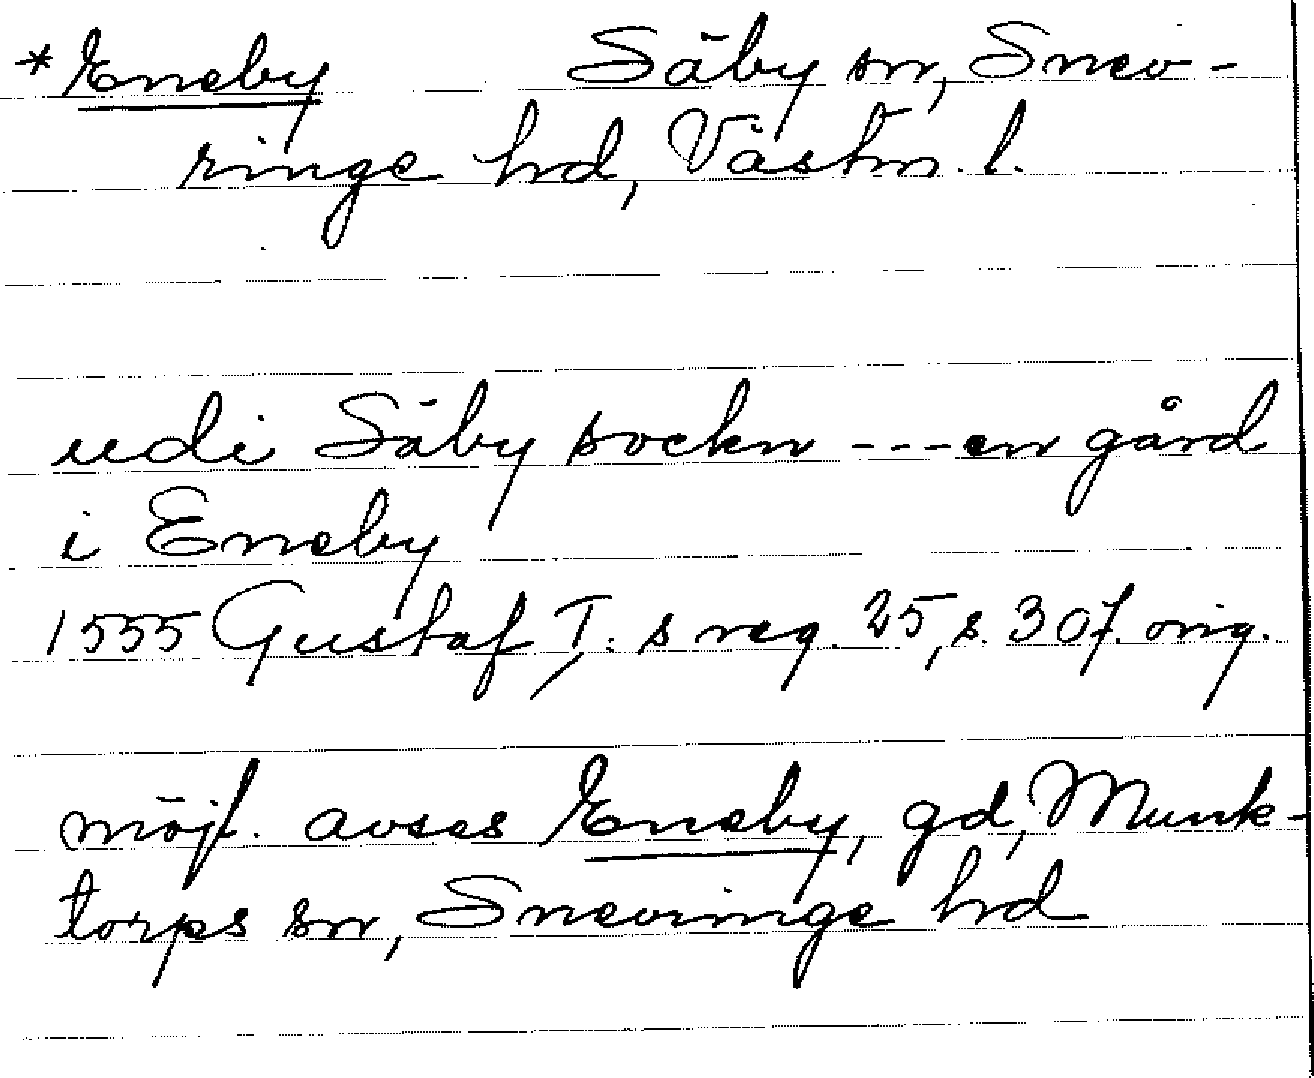 *Eneby Säby sn, Snev-
ringe hd, Västm. l.
udi Säby sockn ---en gård
i Eneby
1555 Gustaf I: s reg. 25, s. 307. orig.
möjl. avses Eneby, gd, Munk-
torps sn, Snevringe hd